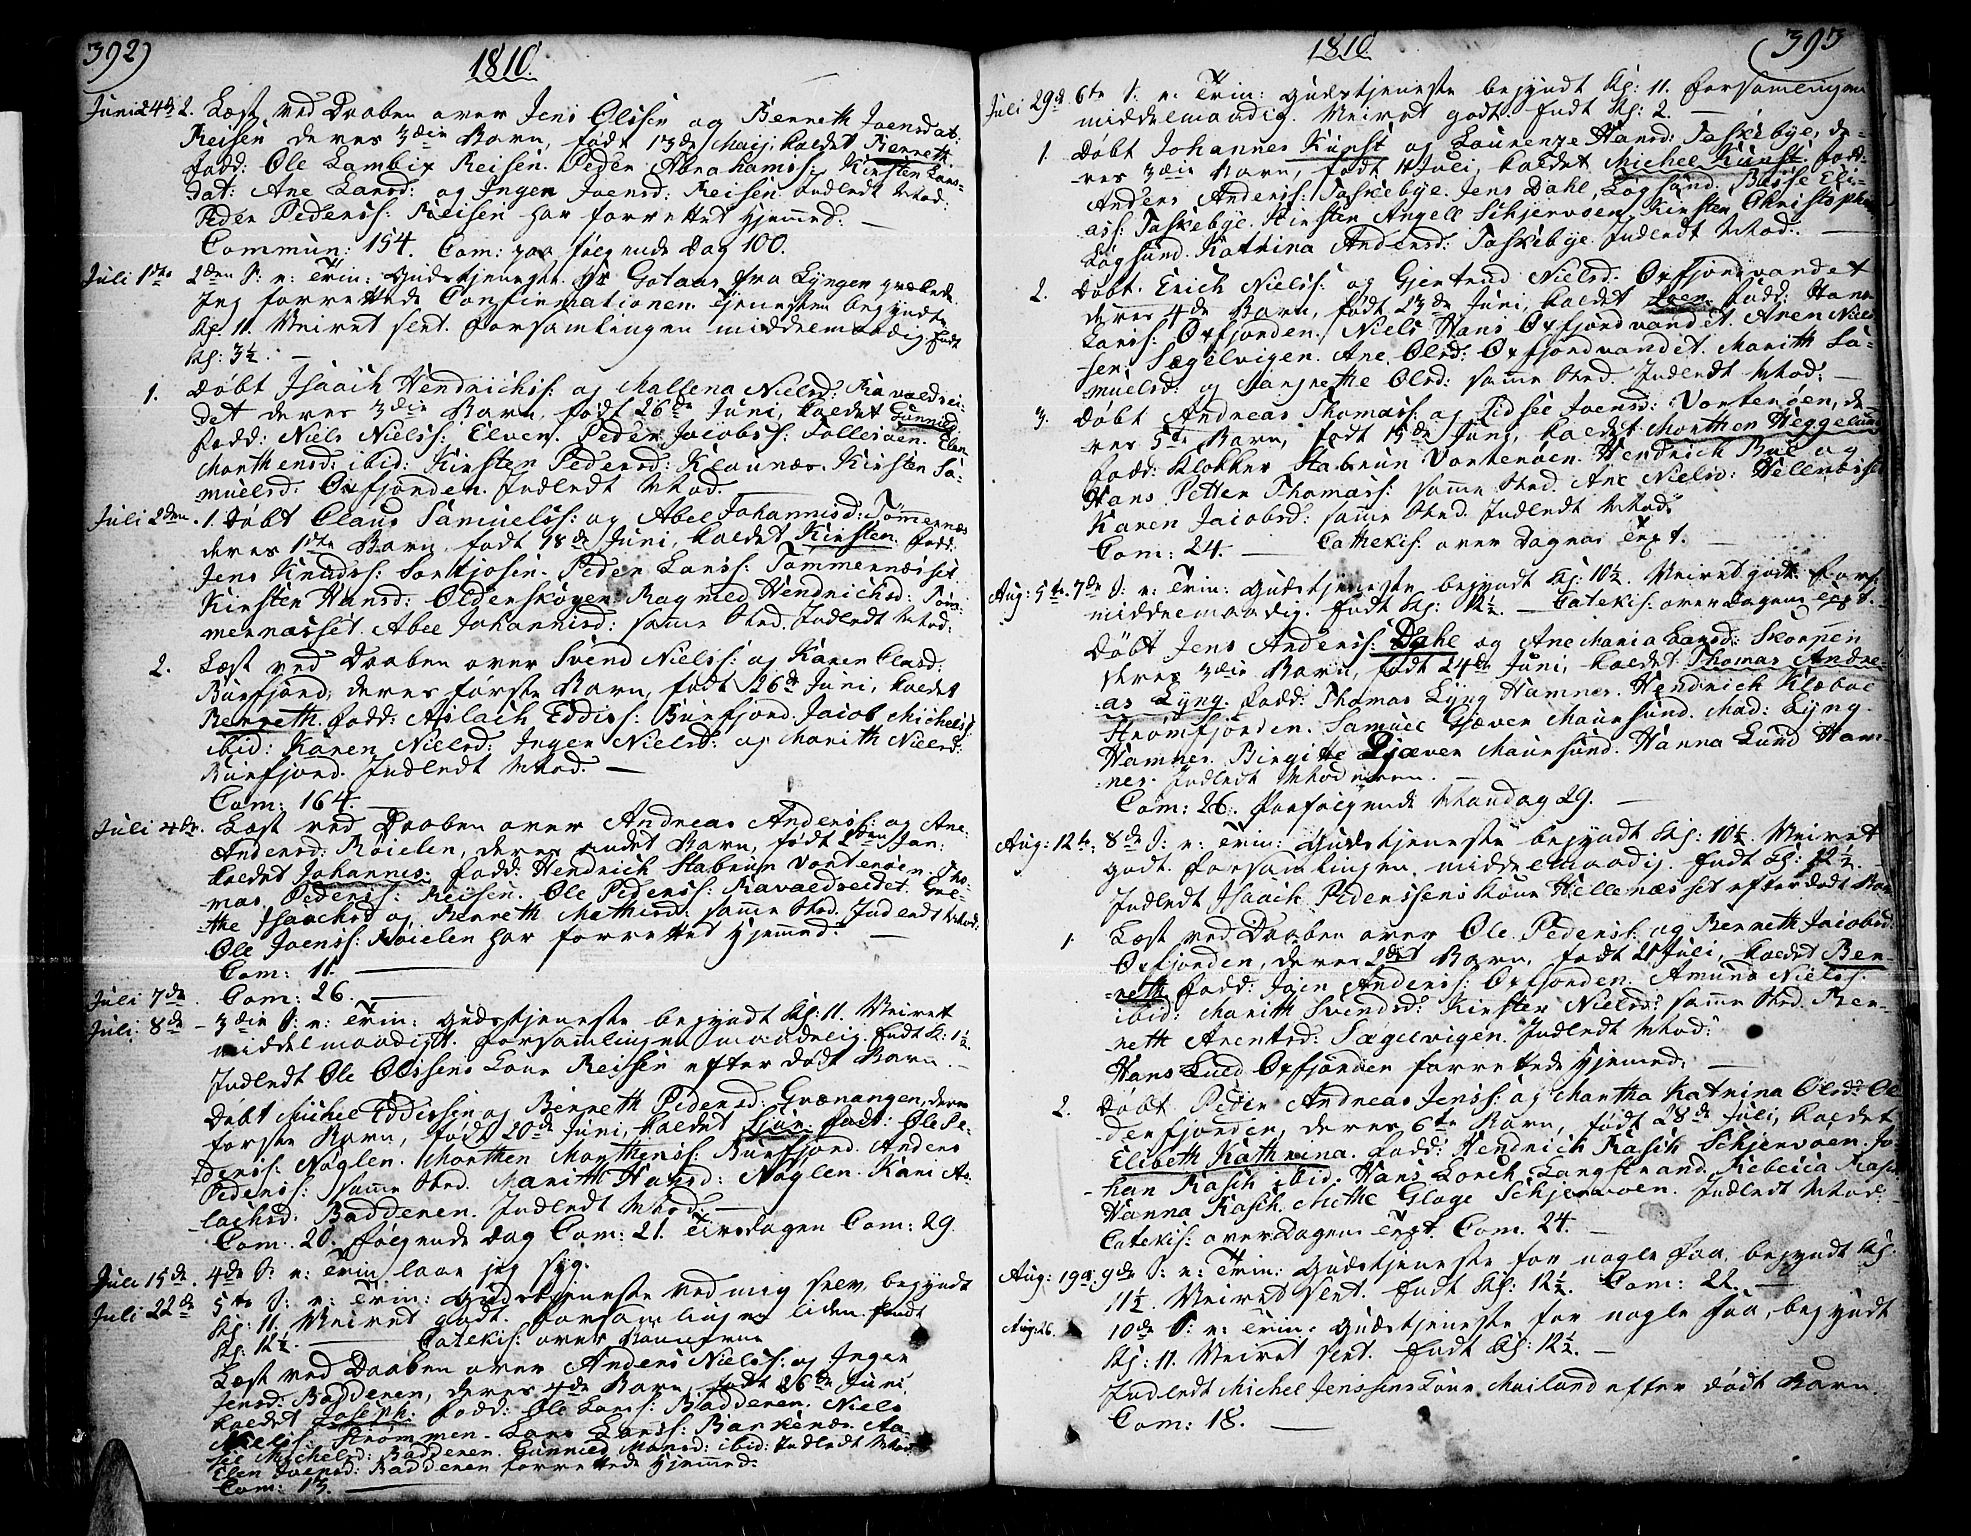 392)
1810.
Juni 24de 2. Læst ved Daaben over Jens Olssen og Berreth Joensdat:
Reisen deres 3die Barn, født 13de Maij, kaldet Berreth.
fadd: Ole Lambix Reisen. Peder Abrahamss: Kirsten Lars-
dat: Ane Larsd: og Inger Joensd: Reisen. Indledt Mod:
Peder Pederss: Reisen har forrettet hjemmed: —
Commun: 154. Com: paa følgende Dag 100.
Juli 1ste 2den S: n: Trin: Gudstjeneste Hr Gotaas fra Lyngen prækede.
Jeg forrettede Confirmationen. Tjenesten begyndte
Kl: 11. Veiret sent. Forsamlingen middelmaadig. Endt
Kl: 3½. —
1. Døbt Isaach Hendrichss: og Mallena Nielsd: Ravaldsei-
det deres 3die Barn, født 26de Juni, kaldet Gunnild.
fadd: Niels Nielss: Elven. Peder Jacobss: Follesøen. Elen
Morthensd: ibid: Kirsten Pedersd: Klaunæs. Kirsten Sa-
muelsd: Oxfjorden. Indledt Mod. —
Juli 2den. 1. Døbt Claus Samuelss: og Abel Johannisd: Tømmernæs
deres 1ste Barn, født 18de Juni, kaldet Kirsten. fadd:
Jens Knudss: Sørkjosen. Peder Larss: Tømmernæsset.
Kirsten Hansd: Olderskogen. Ragnild Hendrichsd: Tøm-
mernæsset. Abel Johannisd: samme Sted. Indledt Mod:
2. Læst ved Daaben over Svend Nielss: og Karen Clasd:
Burfjord, deres første Barn, født 26de Juni, kaldet
Berreth. fadd: Aslach Eddiss: Burfjord. Jacob Michelss:
ibid: Karen Nielsd: Inger Nielsd: og Marith Nielsd:
Burfjord. Indledt Mod. —
Com: 164. —
Juli 4de. Læst ved Daaben over Andreas Anderss: og Ane
Andersd: Røielen, deres andet Barn, født 2den Jan:
kaldet Johannes. fadd: Hendrich Stabrun Vorterøen. Tho-
mas Pederss: Reisen. Ole Pederss: Ravaldseidet. Gre-
the Isaachsd og Berreth Mathisd: samme Sted. Indledt Mod:
Ole Joenss: Røielen har forrettet hjemmed: —
Com: 11. —
Juli 7de. Com: 26. —
Juli 8de – 3die S: n: Trin: Gudstjeneste begyndt Kl: 11. Veiret
middelmaadigt. Forsamlingen maadelig. Endt K: 1½.
Indledt Ole Olssens Kone Reisen efter dødt Barn. —
Døbt Michel Eddissen og Berreth Pedersd: Qvænangen, deres
første Barn, født 20de Juni, kaldet Siur. fadd: Ole Pe-
derss: Nøglen. Morthen Morthenss: Burfjord. Anders
Pederss: samme Sted. Marith Hansd: Nøglen. Kari As-
lachsd: Badderen. Indledt Mod: —
Com: 20. følgende Dag Com: 21. Tirsdagen Com: 29.
Juli 15de. 4de S: n: Trin laae jeg syg.
Juli 22de 5te S: n: Trin: Gudstjeneste ved mig selv, begyndt
Kl: 11. Veiret godt. Forsamlingen liden. Endt
Kl: 12½. — Catekis: over Bønnen
Læst ved Daaben over Anders Nielss: og Inger
Jensd: Badderen, deres 4de Barn, født 26de Juni,
kaldet Joseph. fadd: Ole Larss: Badderen. Niels
Nielss: Strømmen. Lars Larss: Bankenæs. Aa-
sel Michelsd: Badderen. Gunnild Monsd: ibid: Indledt Mod:
Elen Joensd: Badderen forrettede hjemmed:
Com: 13. —
(393
1810.
Juli 29de 6te S: n: Trin: Gudstjeneste begyndt Kl: 11. Forsamlingen
middelmaadig. Veiret godt. Endt Kl: 2. —
1. Døbt Johannes Kunst og Laurenze Hansd: Taskebye, de-
res 3die Barn, født 11 Juli, kaldet Michel Kunst. fadd:
Anders Anderss: Taskebye. Jens Dahl, Løgsund. Basse Eli-
ass: Taskebye. Kirsten Angell Schjervøen. Kirsten Christophers
Løgsund. Katrina Andersd: Taskebye. Indledt Mod: —
2. Døbt Erich Nielss: og Gjertrud Nielsd: Oxfjordvandet
deres 4de Barn, født 23de Juni, kaldet Joen. fadd: Hans
Larss: Oxfjorden. Niels Hans Oxfjordvandet. Aren Niels-
sen Sægelvigen. Ane Olsd: Oxfjordvandet. Marith Sa-
muelsd: og Margrethe Olsd: samme Sted. Indledt Mod: —
3. Døbt Andreas Thomass: og Sidsel Joensd: Vorterøen, de-
res 5te Barn, født 15de Juni, kaldet Morthen Heggelund
fadd: Klokker Stabrun Vorterøen. Hendrich Bul og
Hans Petter Thomass: samme Sted. Ane Nielsd: Hellenæsset
Karen Jacobsd: samme Sted. Indledt Mod:
Com: 24. — Cathekis: over Dagens Text. —
Aug: 5te. 7de S: n: Trin: Gudstjeneste begyndt Kl: 10½. Veiret godt. Fors:
middelmaadig. Endt Kl: 12½. — Catekis: over Dagens Text. —
Døbt Jens Anderss: Dahl og Ane Maria Larsd: Skorpen
deres 3die Barn, født 24de Juni, kaldet Thomas Andre-
as Lyng. fadd: Thomas Lyng Hamnes. Hendrich Klæboe
Strømfjorden. Samuel Gjæver Maursund. Mad: Lyng
Hamnes. Birgithe Gjæver Maursund. Hanna Lund Ham-
nes. Indledt Moderen. —
Com: 26. Paafølgende Mandag 29. —
Aug: 12te. 8de S: n: Trin: Gudstjeneste begyndt Kl: 10½. Veiret
godt. Forsamlingen middelmaadig. Endt Kl: 12½. —
Indledt Isaach Pederssens Kone Hellenæsset efter dødt Barn
1. Læst ved Daaben over Ole Pederss: og Berreth Jacobsd:
Oxfjorden, deres 2det Barn, født 21 Juli, kaldet Ber-
reth. fadd: Joen Anderss: Oxfjorden. Amund Nielss:
ibid: Marith Svendsd: Kirsten Nielsd: samme Sted. Ber-
reth Arentsd: Sægelvigen. Indledt Mod:
Hans Kuld Oxfjorden forrettede hjemmed: —
2. Døbt Peder Andreas Jenss: og Martha Katrina Olsd: Ol-
derfjorden, deres 6te Barn, født 28de Juli, kaldet
Elibeth Kathrina. fadd: Hendrich Rasch Schjervøen. Jo-
han Rasch ibid: Hans Lorck Langstrand. Rebecca Rasch
Hanna Rasch. Mette Gløge Schjervøen. Indledt Mod: —
Catekis: over Dagens Text. Com. 24. —
Aug: 19de 9de S: n: Trin: Gudstjeneste for nogle faa begyndt Kl:
11½. Veiret sent. Endt Kl: 12½. Com: 22. —
Aug: 26. 10de S: n: Trin: Gudstjeneste for nogle faa, begyndt
Kl: 11. Veiret sent. Endt Kl: 12½. —
Indledt Michel Jenssens Kone Mailand efter dødt Barn
Com: 18. —